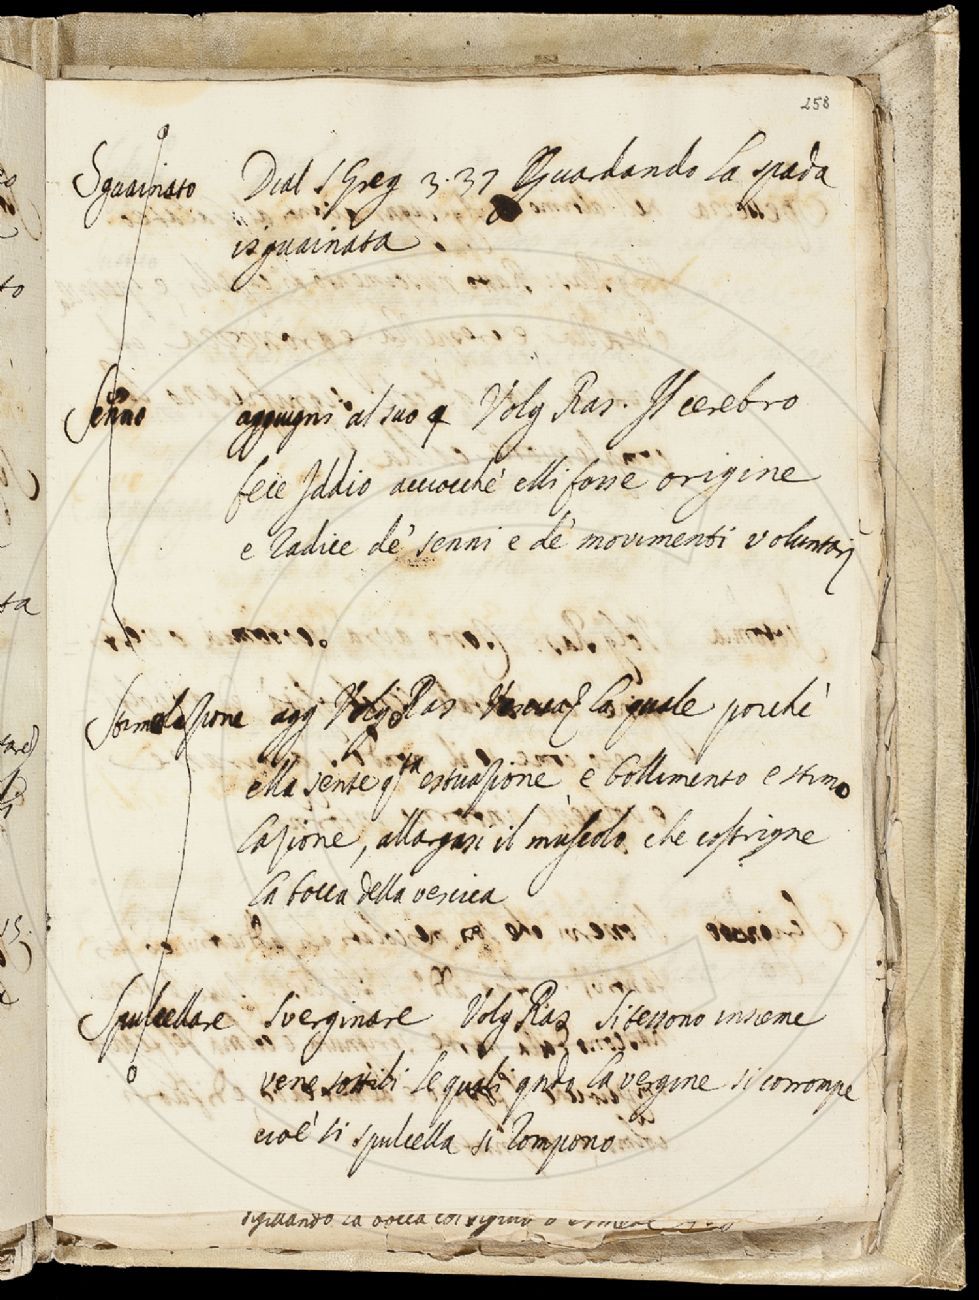 258
Sguainato Dial S Greg 3. 37 Guardando la spada
isguainata.
Senno aggiugni al suo § Volg Ras. Il cerebro
fece Iddio acciocchè elli fosse origine
e radice de' senni e de' movimenti voluntarj
Stimolazione agg Volg Ras la quale poichè
ella sente qsta estuazione e bollimento e stimo
lazione, allargasi il muscolo che costrigne
la bocca della vescica
Spulcellare Sverginare Volg Ras Si tessono insieme
vene sottili le quali qndo la vergine si corrompe
cioè si spulcella si rompono